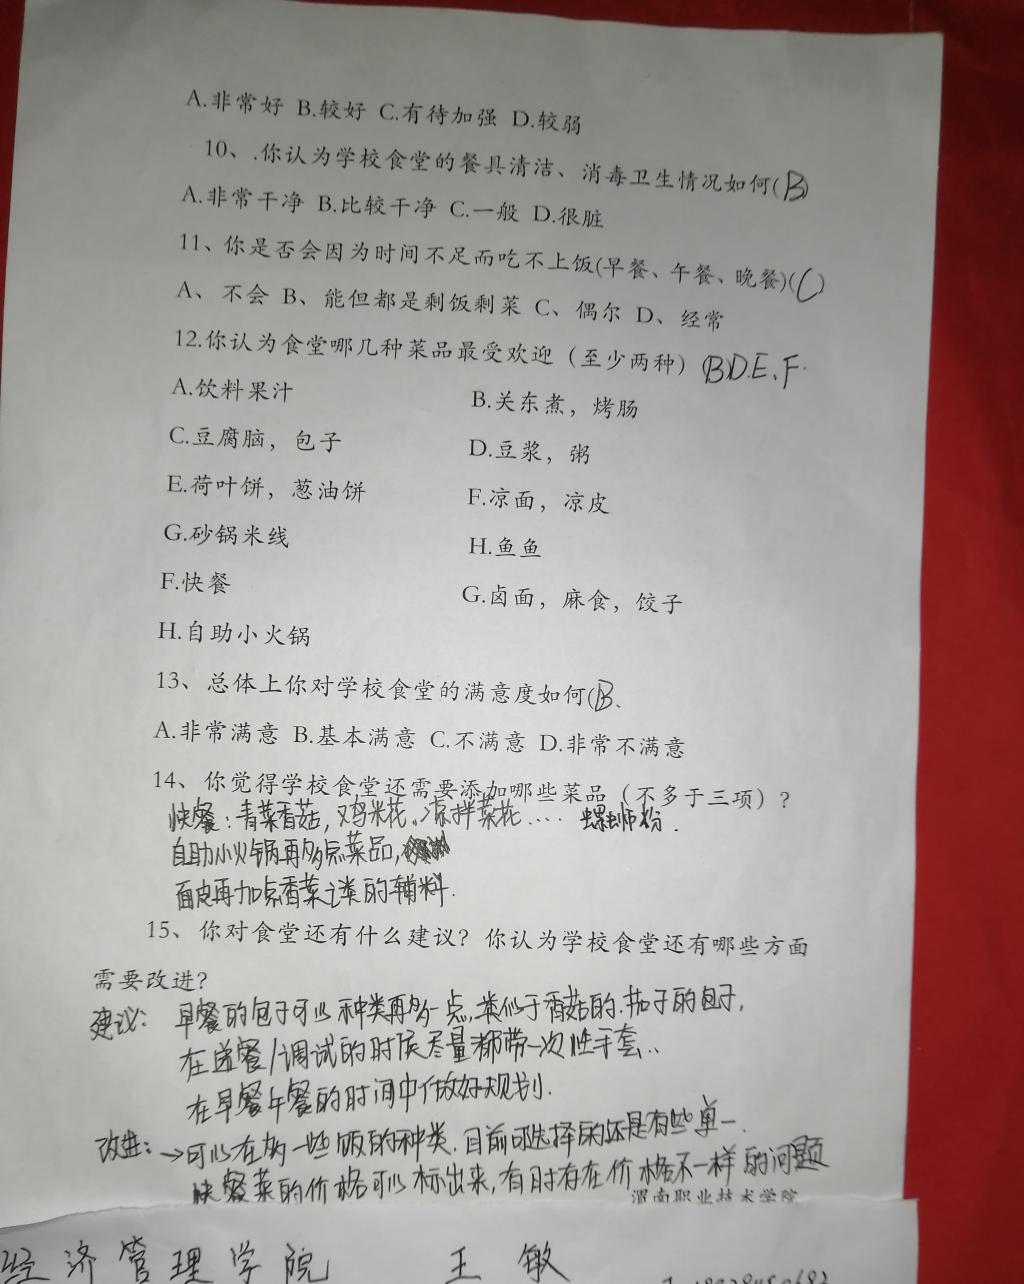 A.非常好 B.较好 C.有待加强 D.较弱
10、.你认为学校食堂的餐具清洁、消毒卫生情况如何(B)
A.非常干净 B.比较干净 C.一般 D.很脏
11、你是否会因为时间不足而吃不上饭(早餐、午餐、晚餐)(C)
A、不会 B、能但都是剩饭剩菜 C、偶尔 D、经常
12.你认为食堂哪几种菜品最受欢迎（至少两种）(B)D.E、F.
A.饮料果汁 B.关东煮，烤肠
C.豆腐脑，包子 D.豆浆，粥
E.荷叶饼，葱油饼 F.凉面，凉皮
G.砂锅米线 H.鱼鱼
F.快餐 G.卤面，麻食，饺子
H.自助小火锅
13、总体上你对学校食堂的满意度如何(B、
A.非常满意 B.基本满意 C.不满意 D.非常不满意
14、你觉得学校食堂还需要添加哪些菜品（不多于三项）?
快餐：青菜香菇，鸡米花、凉拌菜花.... 螺蛳粉.
自助小火锅再多点菜品，
面皮再加点香菜之类的辅料.
15、你对食堂还有什么建议？你认为学校食堂还有哪些方面
需要改进?
建议：早餐的包子可以种类再多一点，类似于香菇的.茄子的包子，
在 餐/调试的时候尽量都带一次性手套..
在早餐午餐的时间中做好规划.
改进：→可以在多一些饭的种类.目前可选择的还是有些单一.
快餐菜的价格可以标出来，有时存在价格不一样的问题
渭南职业技术学院
经济管理学院 王敏